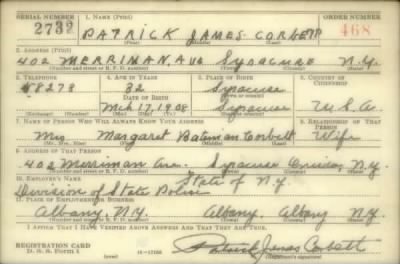 SERIAL NUMBER 1. NAME (Print) ORDER NUMBER
2732 PATRICK JAMES CORBETT 468
(First) (Middle) (Last)
2. ADDRESS (Print)
402 MERRIMAN, AVE SYRACUSE N.Y.
(Number and street or R. F. D. number) (Town) (County) (State)
3. TELEPHONE 4. AGE IN YEARS 5. PLACE OF BIRTH 6. COUNTRY OF CITIZENSHIP
58278 32 Syracuse
DATE OF BIRTH
Mch. 17, 1908 Syracuse U.S.A.
(Exchange) (Number) (Mo.) (Day) (Yr.) (State or country)
7. NAME OF PERSON WHO WILL ALWAYS KNOW YOUR ADDRESS 8. RELATIONSHIP OF THAT PERSON
Mrs Margaret Bateman Corbett Wife
(Mr., Mrs., Miss) (First) (Middle) (Last)
9. ADDRESS OF THAT PERSON
402 Merriman Ave. Syracuse N.Y.
(Number and street or R. F. D. number) (Town) (County) (State)
10. EMPLOYER'S NAME State of N.Y.
Division of State Police
11. PLACE OF EMPLOYMENT OR BUSINESS
Albany, N.Y. Albany, Albany N.Y.
(Number and street or R. F. D. number) (Town) (County) (State)
I AFFIRM THAT I HAVE VERIFIED ABOVE ANSWERS AND THAT THEY ARE TRUE.
REGISTRATION CARD
D. S. S. Form 1 Patrick James Corbett
(Registrant's signature)